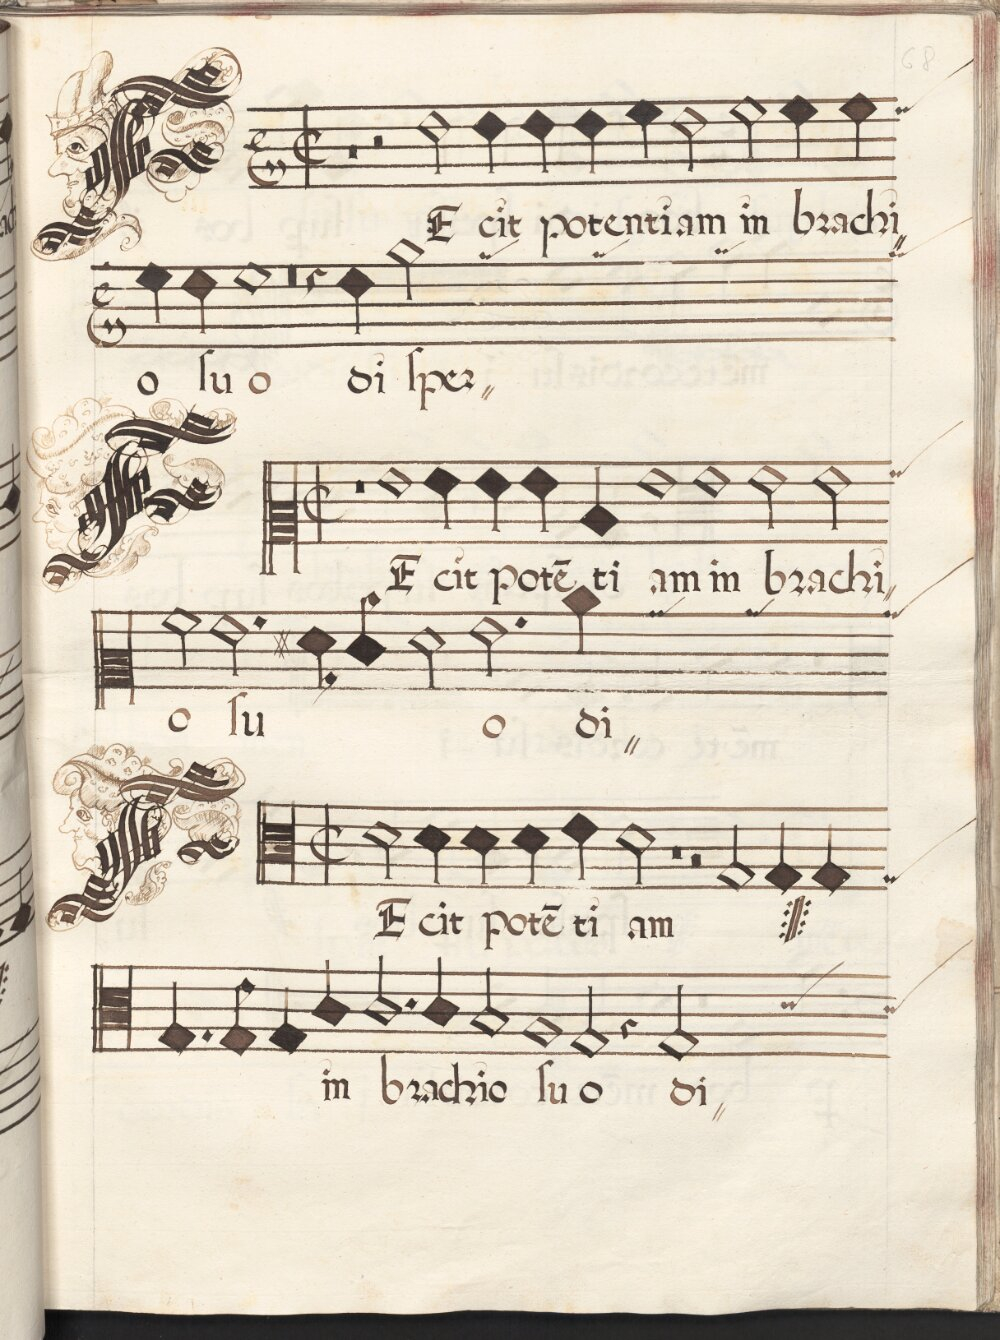 68
FEcit potentiam in brachi
o su o di sper
FEcit potē ti am in brachi
o su o di
FEcit potē ti am
in brachio su o di